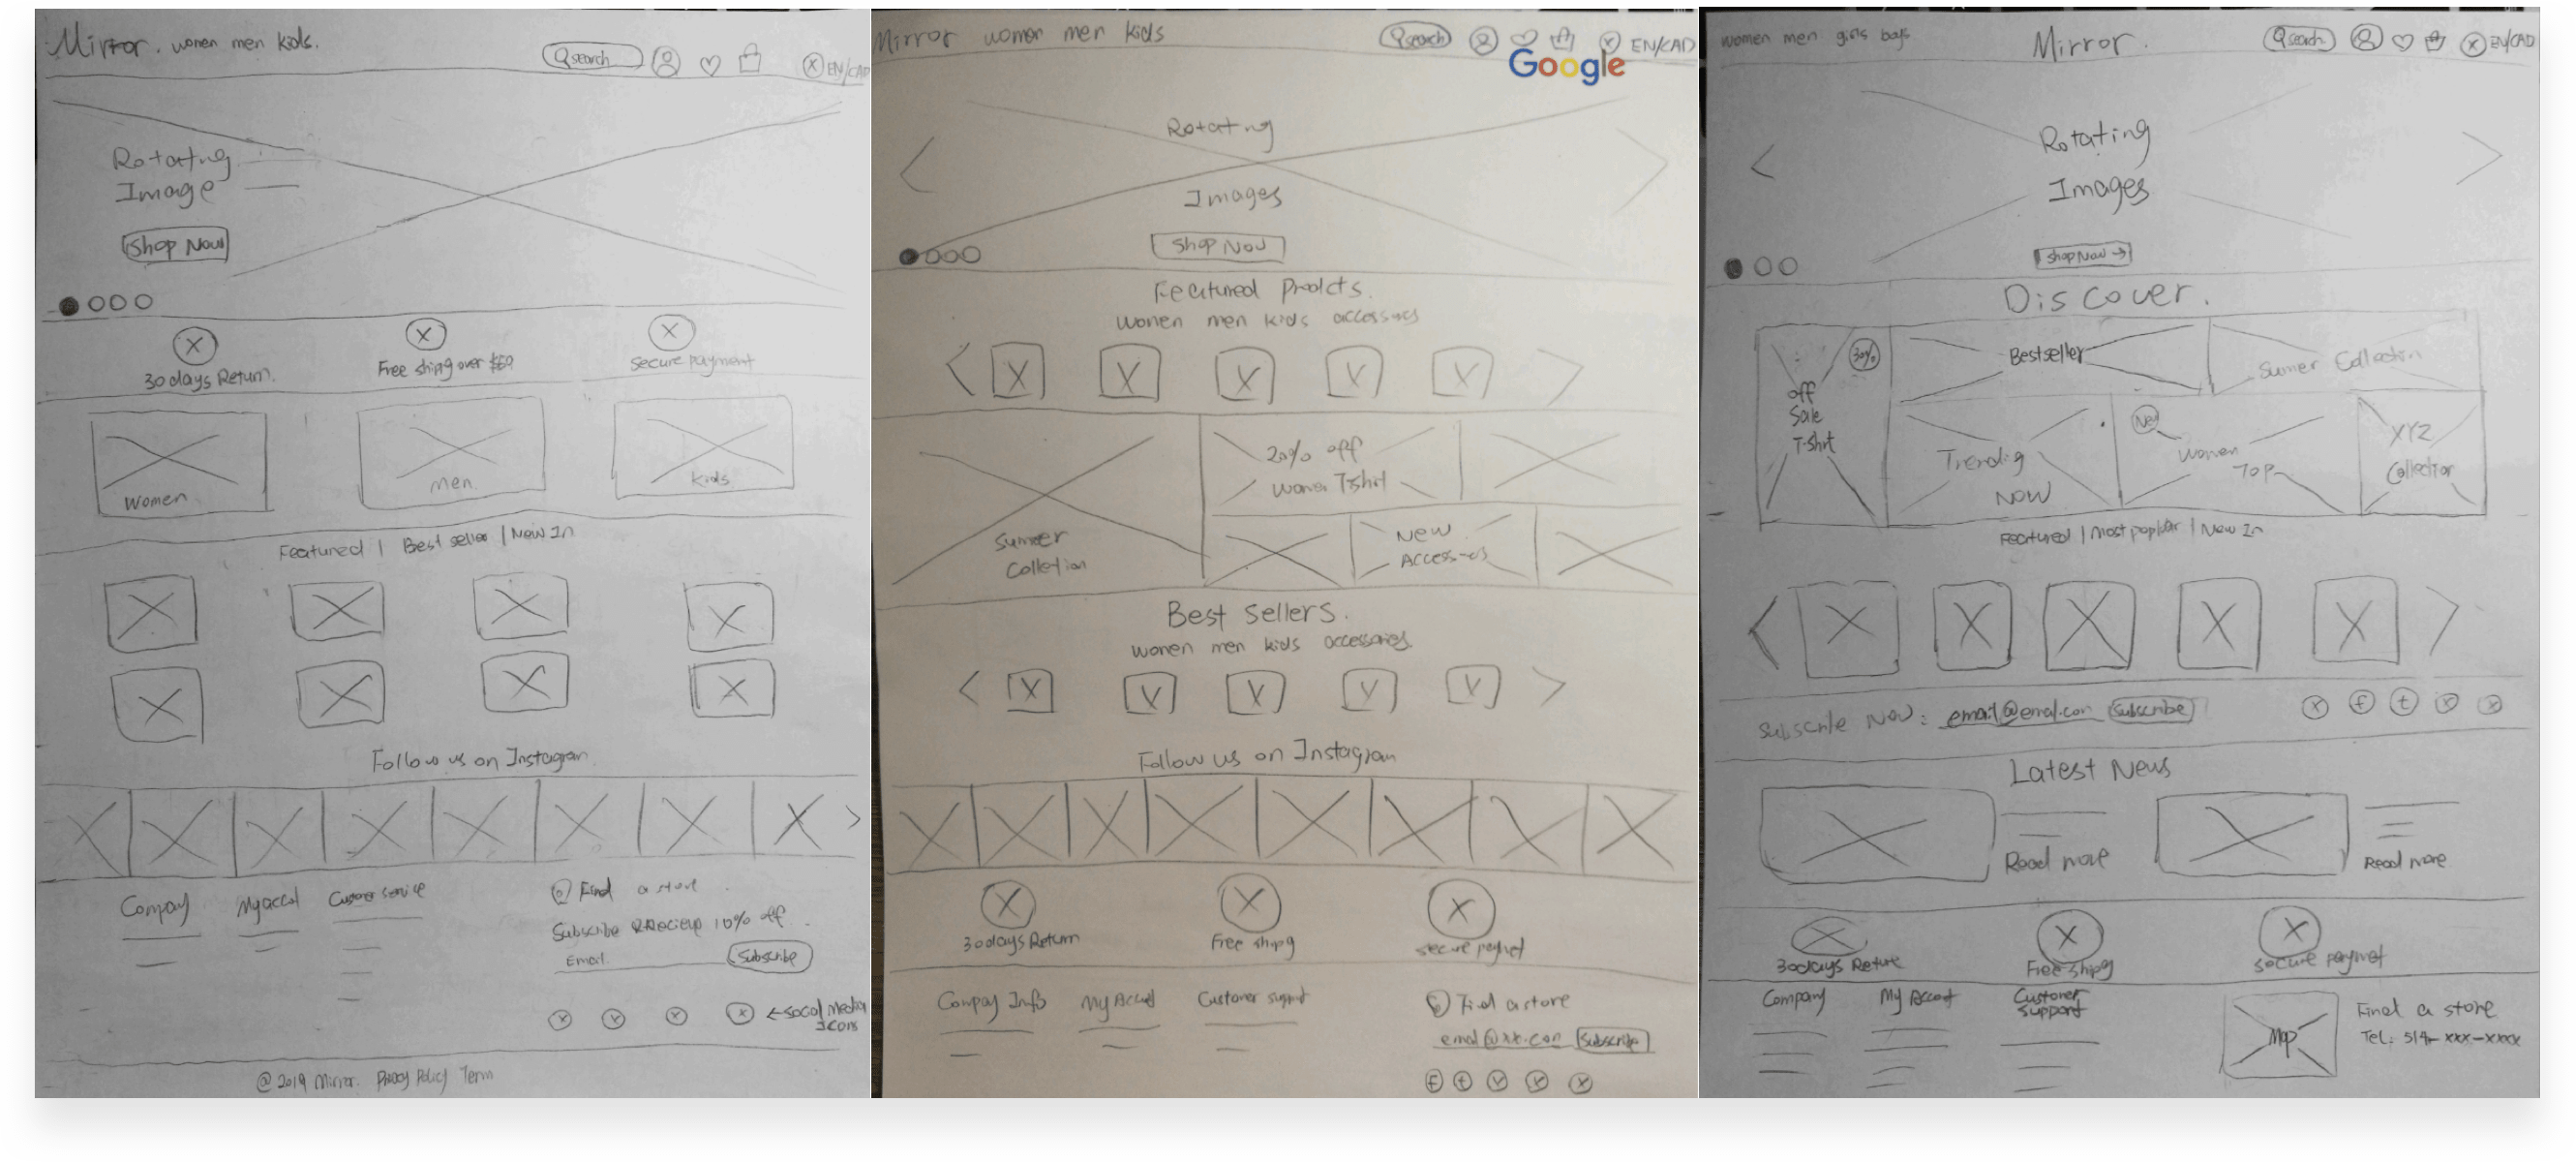 Mirror. women men kids.
search
EN/CAD
Rotating
Image
Shop Now
30 days Return.
Free shipg over $50
secure payment
women
men
kids
Featured | Best seller | New In
Follow us on Instagram
Company
My accot
Customer service
Find a store
Subscribe & Recieve 10% off
Email
Subscribe
←Social media
Icons
@ 2019 Mirror. Privacy Policy Term
Mirror women men kids
search
EN/CAD
Google
Rotating
Images
Shop Now
Featured Prodcts.
women men kids
< >
20% off
Women Tshirt
Summer
Colletion
New
Best sellers.
women men kids accessories
< >
Follow us on Instagram
30 days Return
Free shipg
secure paymet
Compay Info
My Accout
Customer support
Find a store
Subscribe
f t
women men girls boys
Mirror.
search
EN/CAD
< >
Rotating
Images
Shop Now →
Discover.
30%
off
Sale
T-shirt
Bestseller
Summer Collection
Trendig
NOW
New
Women
Top
XYZ
Collection
Featured | Most poplar | New In
< >
Subscribe Now: Subscribe
f t
Latest News
Read more
Read more
30 days Return
Free shipg
secure paymet
Company
My Accout
Customer
support
Map
Find a store
Tel: 514-xxx-xxxx